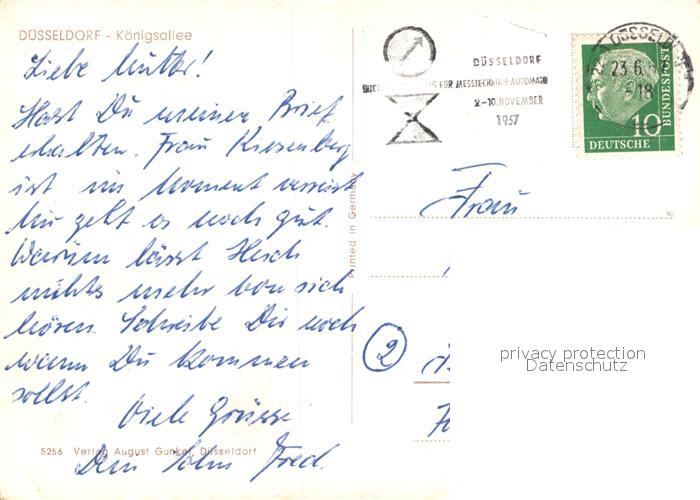 DÜSSELDORF - Königsallee
Liebe Mutter!
Hast Du meinen Brief
erhalten. Frau Kiesenberg
ist im Moment verreist
Mir geht es noch gut.
Warum lässt
nichts mehr von sich
hören. Schreibe Dir noch
wann Du kommen
sollst.
Viele Grüsse
Dein Sohn Fred.
5256 Verlag August Gunkel, Düsseldorf
Printed in Germany
DÜSSELDORF
FÜR MESSTECHNIK + AUTOMATIK
2-10. NOVEMBER
1957
DÜSSELDORF
23.6.
-18
DEUTSCHE
BUNDESPOST
10
Frau
2
privacy protection
Datenschutz